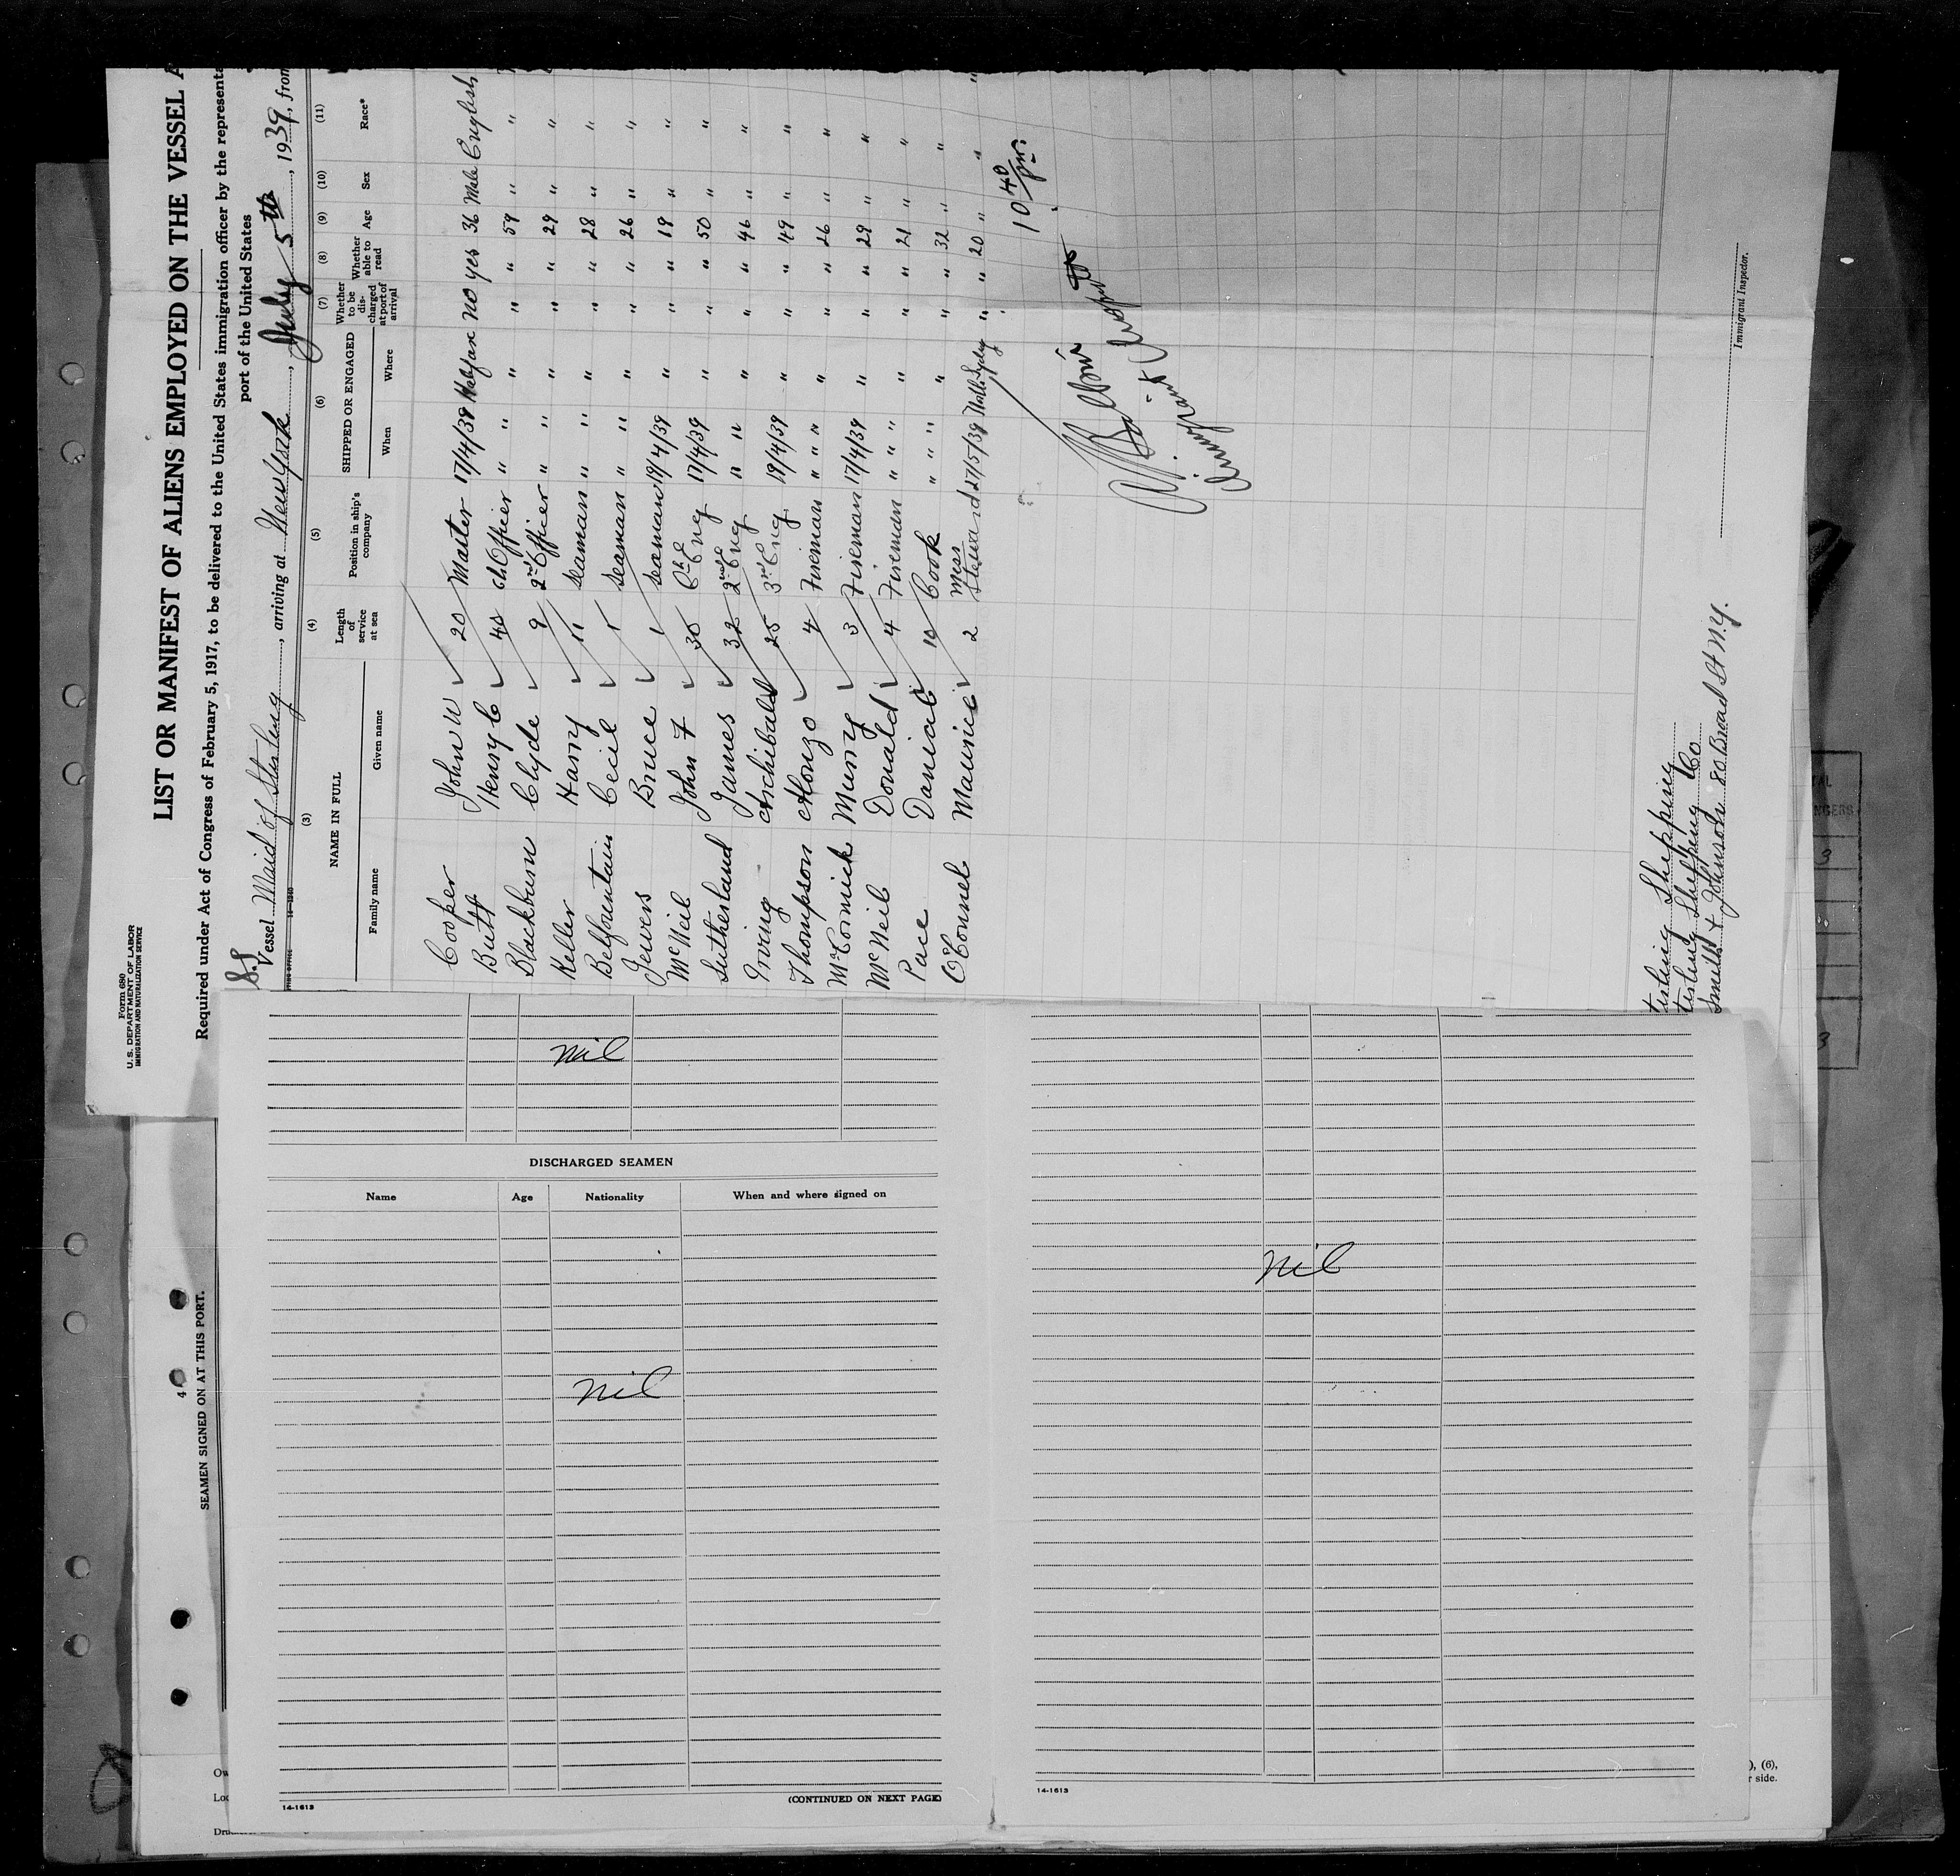 Form 680
U. S. DEPARTMENT OF LABOR
IMMIGRATION AND NATURALIZATION SERVICE
LIST OR MANIFEST OF ALIENS EMPLOYED ON THE VESSEL A
Required under Act of Congress of February 5, 1917, to be delivered to the United States immigration officer by the representa
port of the United States
SS
Vessel Maid of Sterling, arriving at New York, July 5th, 1939, from
(3) (4) (5) (6) (7) (8) (9) (10) (11)
NAME IN FULL Length of service at sea Position in ship's company SHIPPED OR ENGAGED Whether to be discharged at port of arrival Whether able to read Age Sex Race*
Family name Given name When Where
Cooper John W 20 Master 17/4/39 Halifax no yes 36 Male English
Butt Henry C 40 Ch Officer " " " " 59 " "
Blackburn Clyde 9 2nd Officer " " " " 29 " "
Keller Harry 11 Seaman " " " " 28 " "
Belfountain Cecil 1 Seaman " " " " 26 " "
Jewers Bruce 1 Seaman 19/4/39 " " " 18 " "
McNeil John F 30 Ch Eng 17/4/39 " " " 50 " "
Sutherland James 32 2nd Eng " " " " " 46 " "
Irving Archibald 25 3rd Eng 19/4/39 " " " 49 " "
Thompson Alonzo 4 Fireman " " " " " " 26 " "
McCormick Murry 3 Fireman 17/4/39 " " " 29 " "
McNeil Donald 4 Fireman " " " " " 21 " "
Pace Danial 10 Cook " " " " " " 32 " "
O'Connel Maurice 2 Mess Steward 27/5/39 Noth Sydney " " 20 " "
10 40/pm
Immigrant Inspector
Immigrant Inspector.
Shipping
Shipping Co
Smith & Johnson 80 Broad St N.Y.
4
SEAMEN SIGNED ON AT THIS PORT.
Nil
DISCHARGED SEAMEN
Name Age Nationality When and where signed on
Nil
14-1613 (CONTINUED ON NEXT PAGE)
Nil
14-1613
3
3
), (6),
r side.